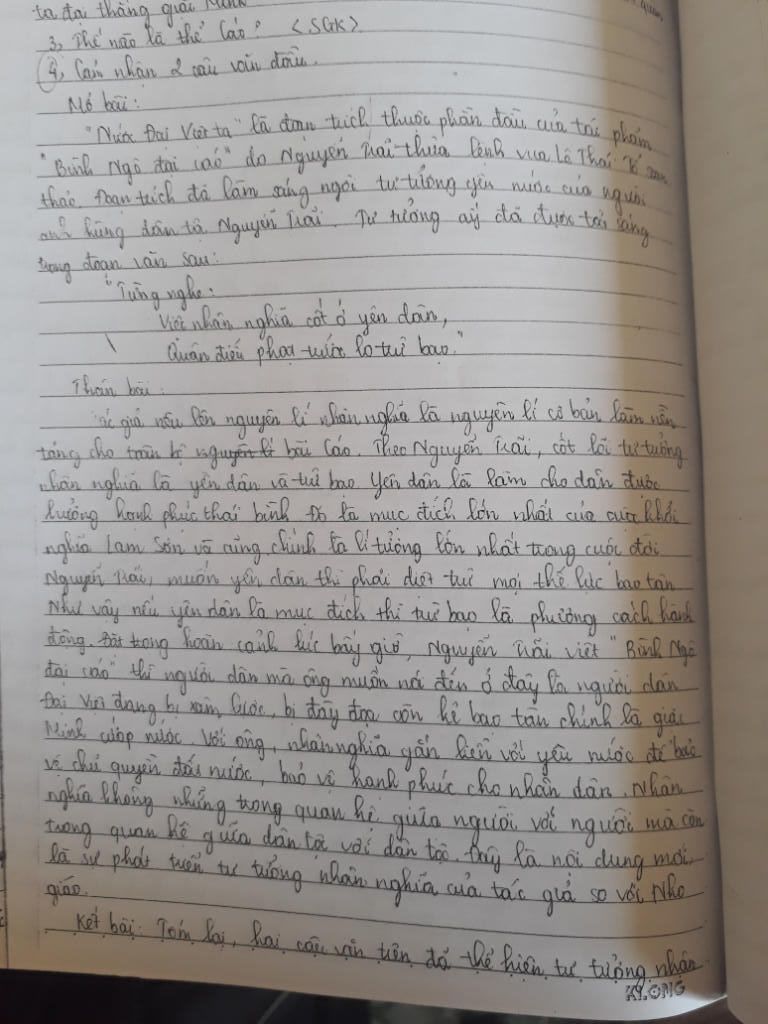 ta đại thắng giặc Minh
3, Thế nào là thể Cáo? <SGK>
4, Cảm nhận 2 câu văn đầu.
Mở bài:
"Nước Đại Việt ta" là đoạn trích thuộc phần đầu của tác phẩm
"Bình Ngô đại cáo" do Nguyễn Trãi thừa lệnh vua Lê Thái Tổ soạn
thảo. Đoạn trích đã làm sáng ngời tư tưởng yêu nước của người
anh hùng dân tộ Nguyễn Trãi. Tư tưởng ấy đã được toả sáng
trong đoạn văn sau:
"Từng nghe:
Việt nhân nghĩa cốt ở yên dân,
Quân điếu phạt trước lo trừ bạo."
Thân bài:
Tác giả nêu lên nguyên lí nhân nghĩa là nguyên lí cơ bản làm nền
tảng cho toàn bộ nguyên lí bài Cáo. Theo Nguyễn Trãi, cốt lõi tư tưởng
nhân nghĩa là yên dân và trừ bạo. Yên dân là làm cho dân được
hưởng hạnh phúc thái bình. Đó là mục đích lớn nhất của cuộc khởi
nghĩa Lam Sơn và cũng chính là lí tưởng lớn nhất trong cuộc đời
Nguyễn Trãi, muốn yên dân thì phải diệt trừ mọi thế lực bạo tàn
Như vậy nếu yên dân là mục đích thì trừ bạo là phương cách hành
động. Đặt trong hoàn cảnh lúc bấy giờ, Nguyễn Trãi viết "Bình Ngô
đại cáo" thì người dân mà ông muốn nói đến ở đây là người dân
Đại Việt đang bị xâm lược, bị đày đọa còn kẻ bạo tàn chính là giặc
Minh cướp nước. Với ông, nhân nghĩa gắn liền với yêu nước để bảo
vệ chủ quyền đất nước, bảo vệ hạnh phúc cho nhân dân. Nhân
nghĩa không những trong quan hệ giữa người với người mà còn
trong quan hệ giữa dân tộc với dân tộc. Đây là nội dung mới,
là sự phát triển tư tưởng nhân nghĩa của tác giả so với Nho
giáo.
Kết bài: Tóm lại, hai câu văn trên đã thể hiện tư tưởng nhân
KLONG